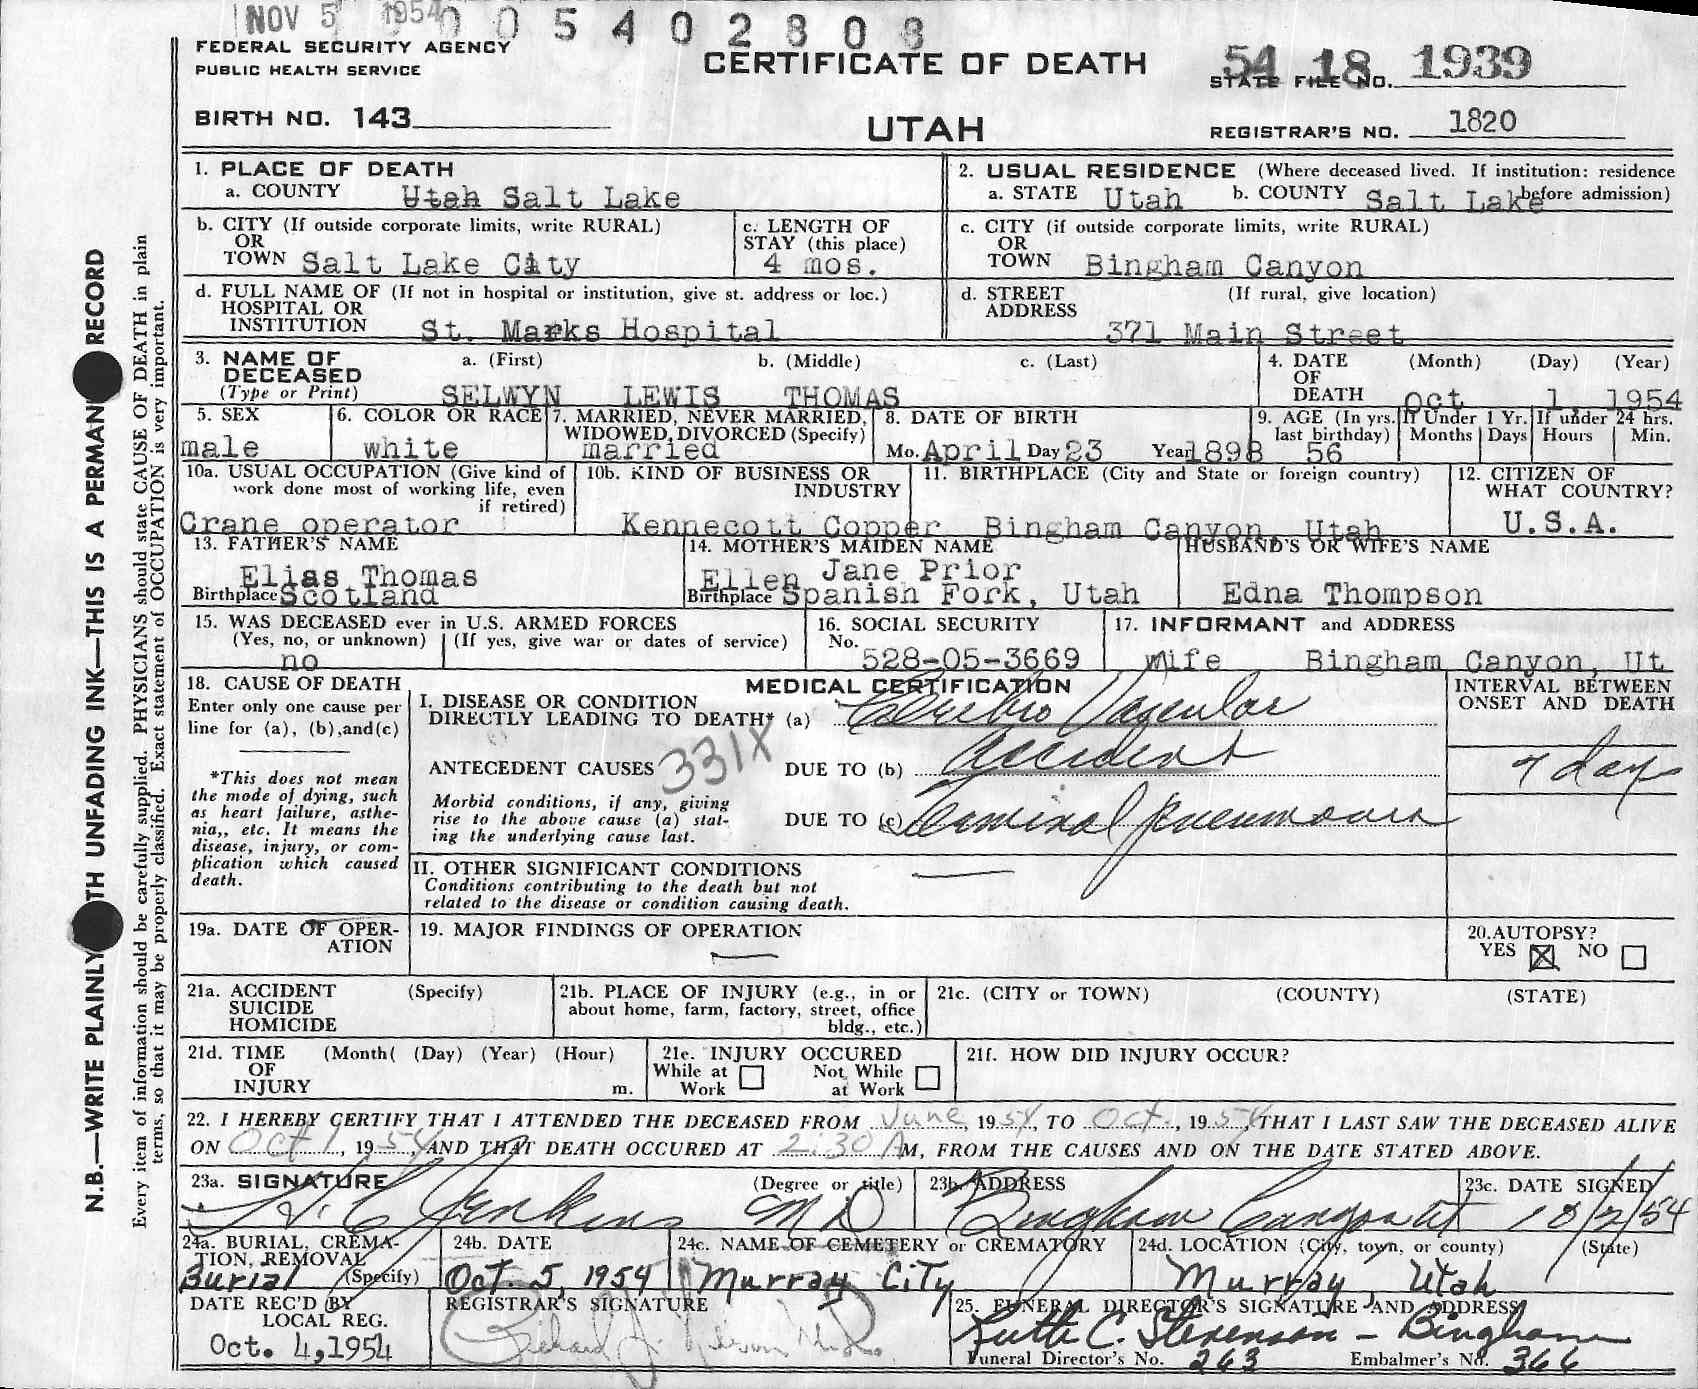 NOV 5 1954 0 0 5 4 0 2 8 0 8
FEDERAL SECURITY AGENCY
PUBLIC HEALTH SERVICE
CERTIFICATE OF DEATH
STATE FILE NO. 54 18 1939
BIRTH NO. 143
UTAH
REGISTRAR'S NO. 1820
N.B.—WRITE PLAINLY TH UNFADING INK—THIS IS A PERMAN RECORD
Every item of information should be carefully supplied. PHYSICIANS should state CAUSE OF DEATH in plain
terms, so that it may be properly classified. Exact statement of OCCUPATION is very important.
1. PLACE OF DEATH
a. COUNTY Utah Salt Lake
2. USUAL RESIDENCE (Where deceased lived. If institution: residence
before admission)
a. STATE Utah b. COUNTY Salt Lake
b. CITY (If outside corporate limits, write RURAL)
OR
TOWN Salt Lake City
c. LENGTH OF
STAY (this place)
4 mos.
c. CITY (if outside corporate limits, write RURAL)
OR
TOWN Bingham Canyon
d. FULL NAME OF (If not in hospital or institution, give st. address or loc.)
HOSPITAL OR
INSTITUTION St. Marks Hospital
d. STREET (If rural, give location)
ADDRESS
371 Main Street
3. NAME OF a. (First) b. (Middle) c. (Last)
DECEASED
(Type or Print) SELWYN LEWIS THOMAS
4. DATE (Month) (Day) (Year)
OF
DEATH Oct 1, 1954
5. SEX
male
6. COLOR OR RACE
white
7. MARRIED, NEVER MARRIED,
WIDOWED, DIVORCED (Specify)
married
8. DATE OF BIRTH
Mo. April Day 23 Year 1898
9. AGE (In yrs.
last birthday)
56
If Under 1 Yr.
Months Days
If under 24 hrs.
Hours Min.
10a. USUAL OCCUPATION (Give kind of
work done most of working life, even
if retired)
Crane operator
10b. KIND OF BUSINESS OR
INDUSTRY
Kennecott Copper
11. BIRTHPLACE (City and State or foreign country)
Bingham Canyon, Utah
12. CITIZEN OF
WHAT COUNTRY?
U.S.A.
13. FATHER'S NAME
Elias Thomas
Birthplace Scotland
14. MOTHER'S MAIDEN NAME
Ellen Jane Prior
Birthplace Spanish Fork, Utah
HUSBAND'S OR WIFE'S NAME
Edna Thompson
15. WAS DECEASED ever in U.S. ARMED FORCES
(Yes, no, or unknown) (If yes, give war or dates of service)
no
16. SOCIAL SECURITY
No. 528-05-3669
17. INFORMANT and ADDRESS
Wife Bingham Canyon, Ut
18. CAUSE OF DEATH
Enter only one cause per
line for (a), (b), and (c)
*This does not mean
the mode of dying, such
as heart failure, asthe-
nia,, etc. It means the
disease, injury, or com-
plication which caused
death.
MEDICAL CERTIFICATION
I. DISEASE OR CONDITION
DIRECTLY LEADING TO DEATH* (a) Cerebro Vascular
ANTECEDENT CAUSES 331X DUE TO (b) Accident
Morbid conditions, if any, giving
rise to the above cause (a) stat-
ing the underlying cause last.
DUE TO (c) Terminal pneumonia
INTERVAL BETWEEN
ONSET AND DEATH
7 days
II. OTHER SIGNIFICANT CONDITIONS
Conditions contributing to the death but not
related to the disease or condition causing death.
19a. DATE OF OPER-
ATION
19. MAJOR FINDINGS OF OPERATION
20. AUTOPSY?
YES ☒ NO ☐
21a. ACCIDENT (Specify)
SUICIDE
HOMICIDE
21b. PLACE OF INJURY (e.g., in or
about home, farm, factory, street, office
bldg., etc.)
21c. (CITY or TOWN) (COUNTY) (STATE)
21d. TIME (Month( (Day) (Year) (Hour)
OF
INJURY m.
21e. INJURY OCCURED
While at Not While
Work ☐ at Work ☐
21f. HOW DID INJURY OCCUR?
22. I HEREBY CERTIFY THAT I ATTENDED THE DECEASED FROM June, 1954, TO Oct., 1954, THAT I LAST SAW THE DECEASED ALIVE
ON Oct 1, 1954, AND THAT DEATH OCCURED AT 2:30 A M, FROM THE CAUSES AND ON THE DATE STATED ABOVE.
23a. SIGNATURE (Degree or title)
H. C. Jenkins MD
23b. ADDRESS
Bingham Canyon Ut
23c. DATE SIGNED
10/2/54
24a. BURIAL, CREMA-
TION, REMOVAL
Burial (Specify)
24b. DATE
Oct. 5, 1954
24c. NAME OF CEMETERY or CREMATORY
Murray City
24d. LOCATION (City, town, or county) (State)
Murray, Utah
DATE REC'D BY
LOCAL REG.
Oct. 4, 1954
REGISTRAR'S SIGNATURE
Richard J. Nelson
25. FUNERAL DIRECTOR'S SIGNATURE AND ADDRESS
C. Stevenson – Bingham
Funeral Director's No. 263 Embalmer's No. 366